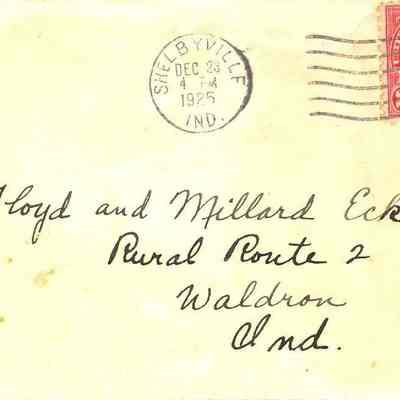 SHELBYVILLE
DEC 23
4 PM
1925
IND.
Floyd and Millard Eck
Rural Route 2
Waldron
Ind.